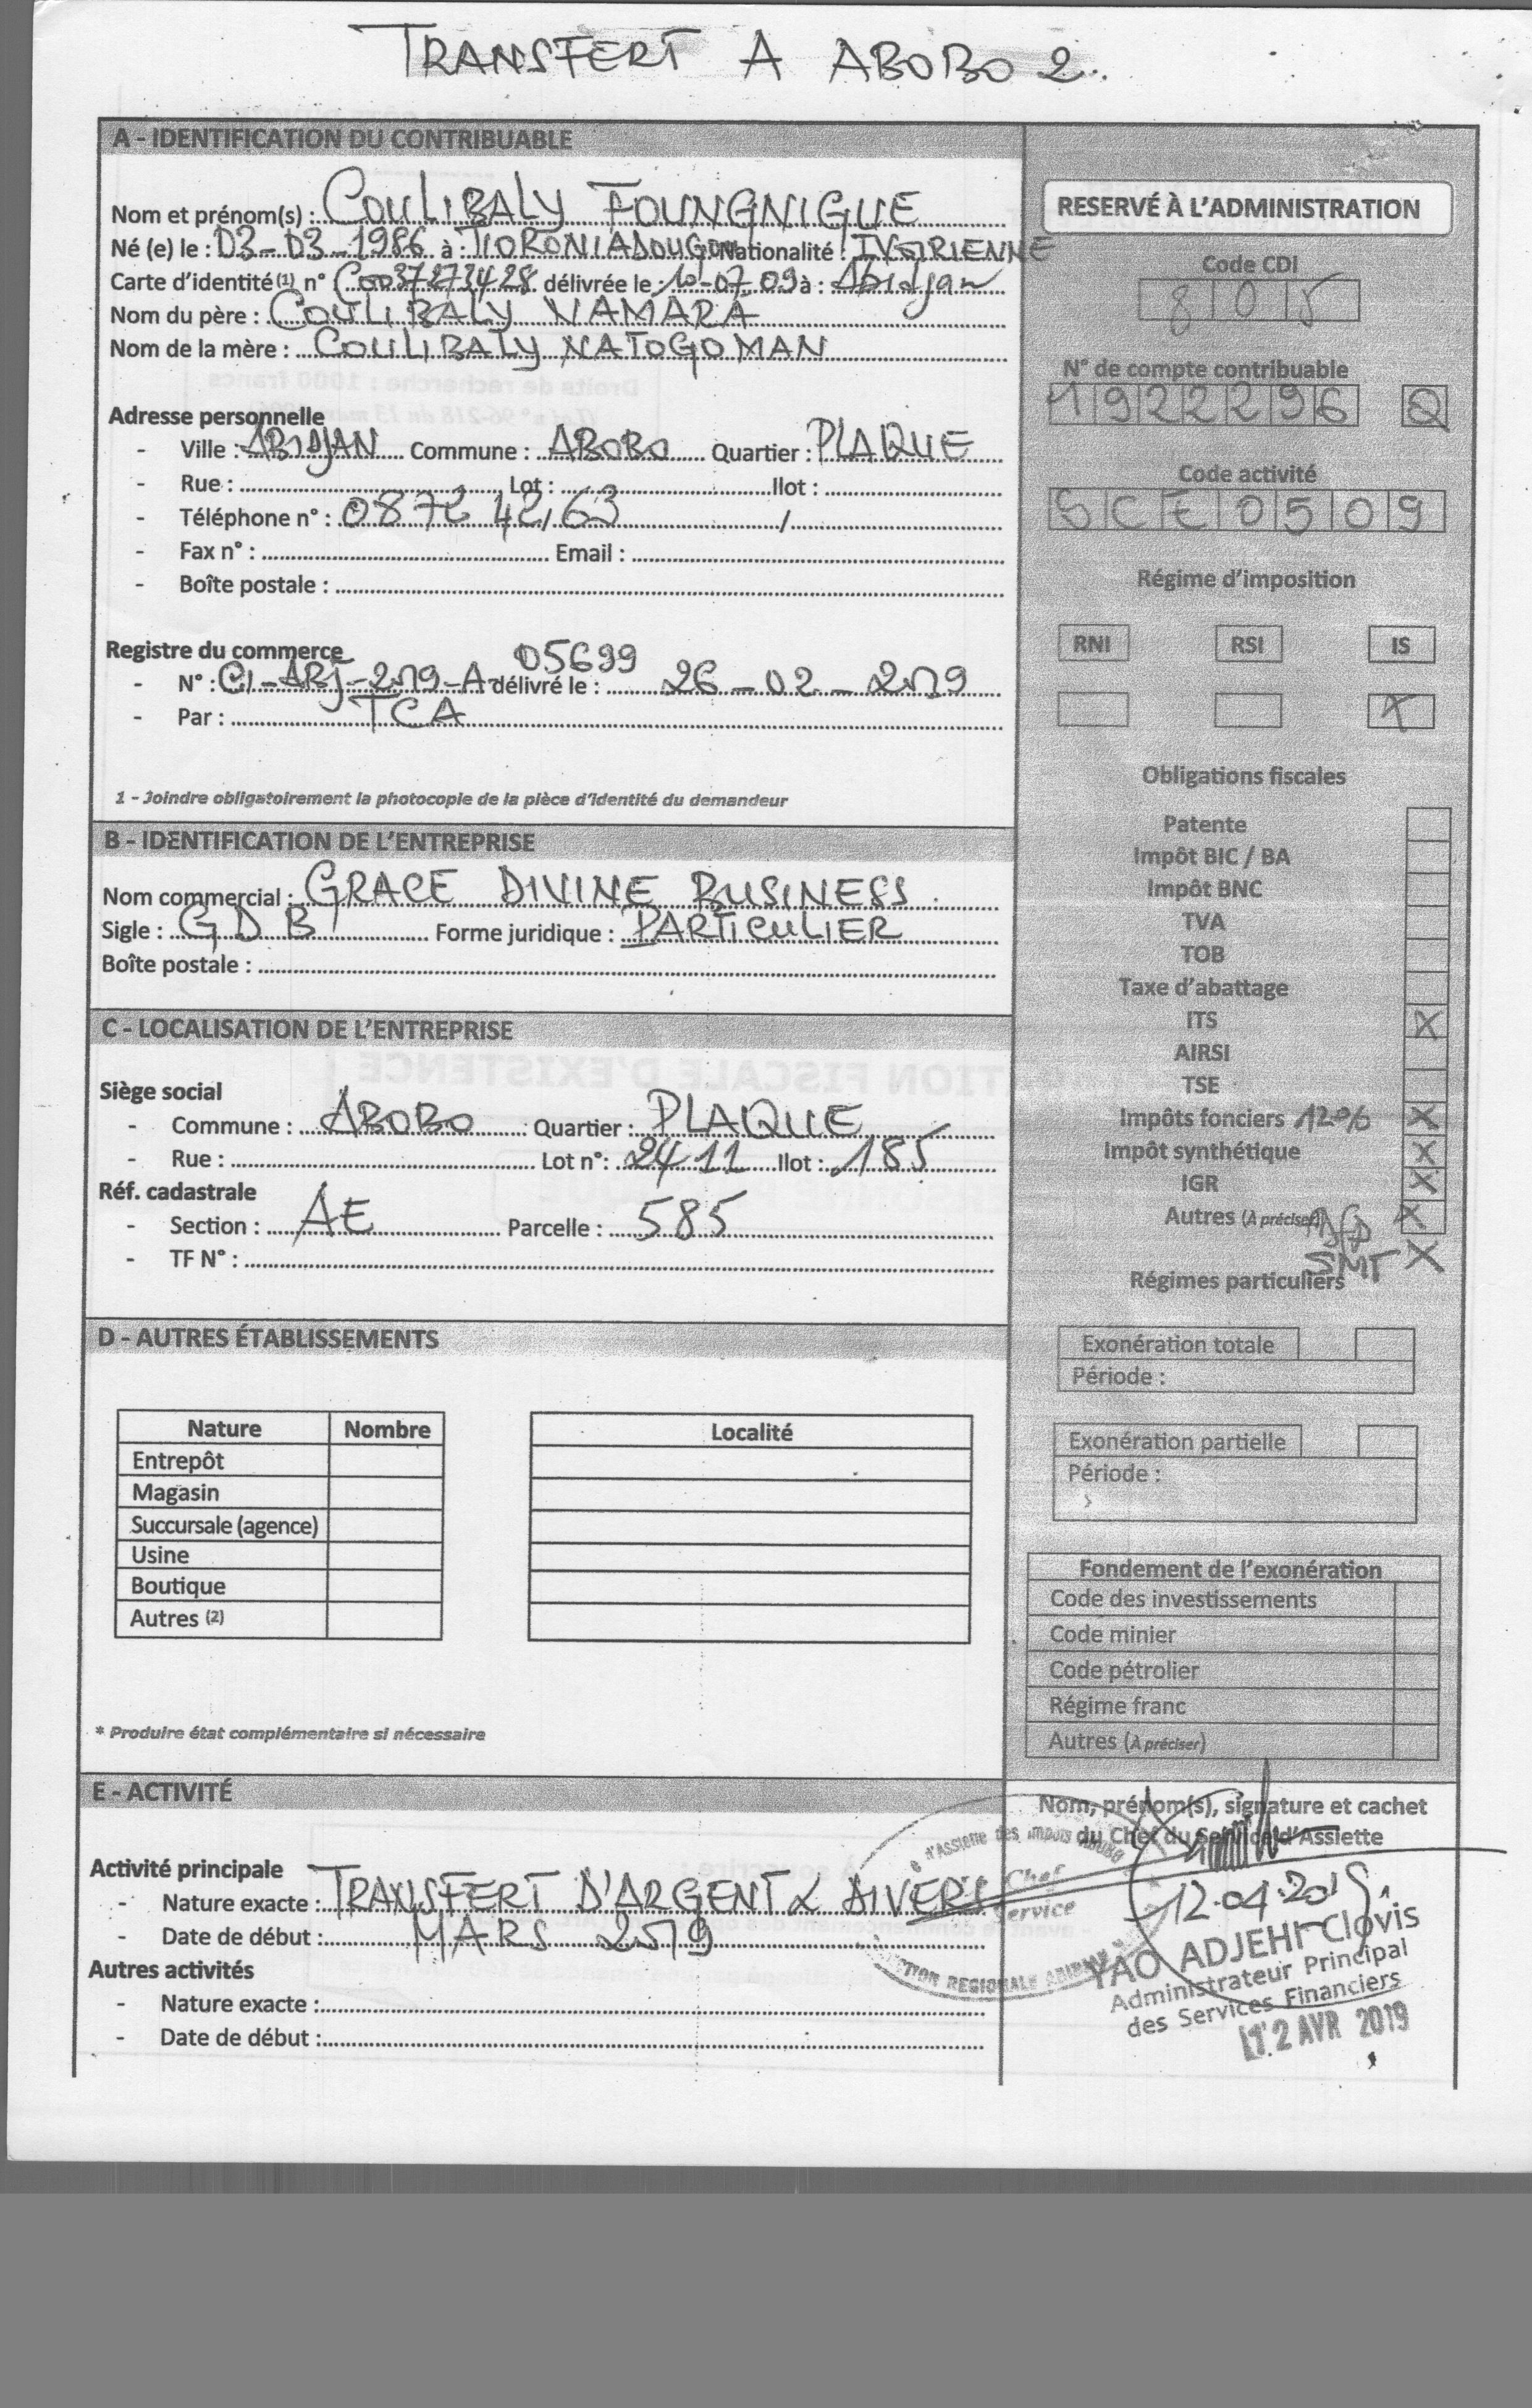 TRANSFERT A ABOBO 2
A - IDENTIFICATION DU CONTRIBUABLE
Nom et prénom(s) : COULIBALY FOUNGNIGUE
Né (e) le : 03-03-1986 à : TIORONIADOUGOU Nationalité : IVOIRIENNE
Carte d'identité (1) n° C0037273428 délivrée le : 10-07-09 à : Abidjan
Nom du père : COULIBALY NAMARA
Nom de la mère : COULIBALY NATOGOMAN
Adresse personnelle
- Ville : ABIDJAN Commune : ABOBO Quartier : PLAQUE
- Rue : Lot : Ilot :
- Téléphone n° : 0872 42 63 /
- Fax n° : Email :
- Boîte postale :
Registre du commerce
05699
- N° : CI-ABJ-2019-A- délivré le : 26-02-2019
- Par : TCA
1 - Joindre obligatoirement la photocopie de la pièce d'identité du demandeur
B - IDENTIFICATION DE L'ENTREPRISE
Nom commercial : GRACE DIVINE BUSINESS
Sigle : G D B Forme juridique : PARTICULIER
Boîte postale :
C - LOCALISATION DE L'ENTREPRISE
Siège social
- Commune : ABOBO Quartier : PLAQUE
- Rue : Lot n° : 2411 Ilot : 185
Réf. cadastrale
- Section : AE Parcelle : 585
- TF N° :
D - AUTRES ÉTABLISSEMENTS
Nature Nombre Localité
Entrepôt
Magasin
Succursale (agence)
Usine
Boutique
Autres (2)
* Produire état complémentaire si nécessaire
E - ACTIVITÉ
Activité principale
- Nature exacte : TRANSFERT D'ARGENT & DIVERS
- Date de début : MARS 2019
Autres activités
- Nature exacte :
- Date de début :
RESERVÉ À L'ADMINISTRATION
Code CDI
8 0 1 5
N° de compte contribuable
1922296 Q
Code activité
SCE0509
Régime d'imposition
RNI RSI IS
X
Obligations fiscales
Patente
Impôt BIC / BA
Impôt BNC
TVA
TOB
Taxe d'abattage
ITS X
AIRSI
TSE
Impôts fonciers 12% X
Impôt synthétique X
IGR X
Autres (À préciser) X
SMT X
Régimes particuliers
Exonération totale
Période :
Exonération partielle
Période :
Fondement de l'exonération
Code des investissements
Code minier
Code pétrolier
Régime franc
Autres (À préciser)
Nom, prénom(s), signature et cachet
du Chef du Service d'Assiette
d'Assiette des Impôts
Chef
Service
REGIONALE
12.04.2019
YAO ADJEHI Clovis
Administrateur Principal
des Services Financiers
12 AVR 2019